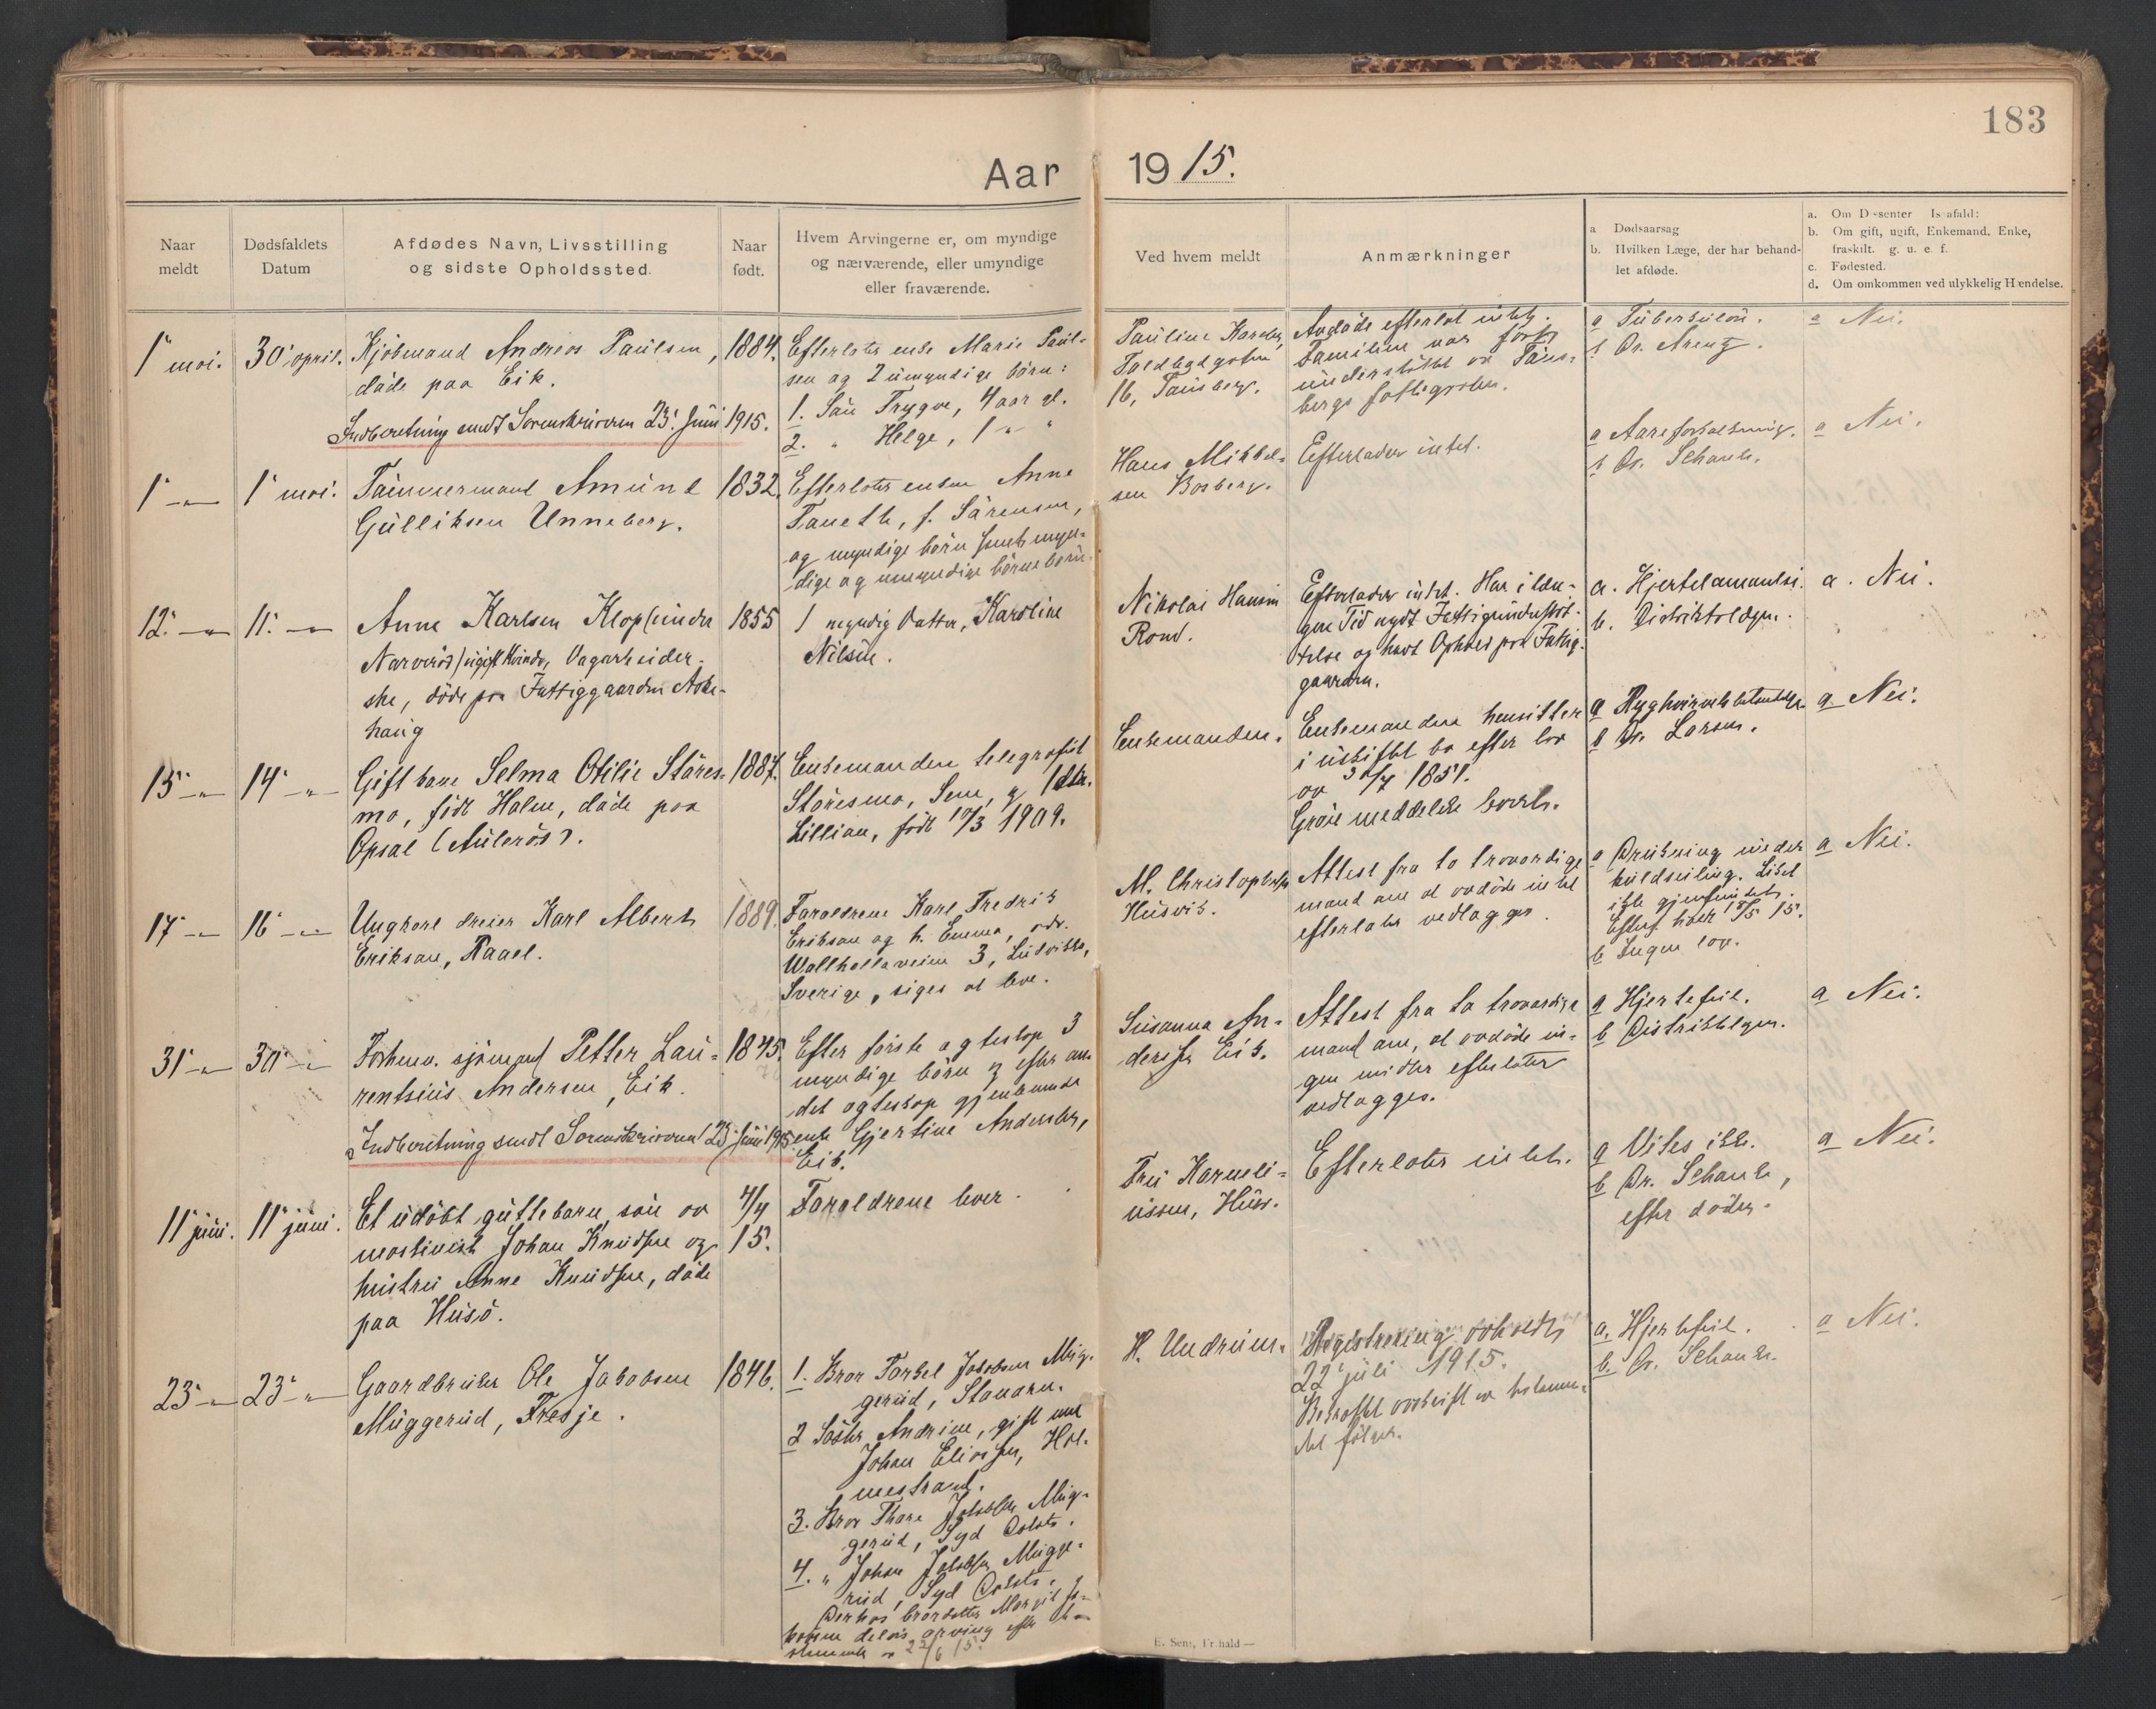 183
Aar 1915.
Naar meldt
Dødsfaldets Datum
Afdødes Navn, Livsstilling og sidste Opholdssted.
Naar født.
Hvem Arvingerne er, om myndige og nærværende, eller umyndige eller fraværende.
Ved hvem meldt
Anmærkninger
a Dødsaarsag
b. Hvilken Læge, der har behandlet afdøde.
a. Om Dissenter Isafald:
b. Om gift, ugift, Enkemand, Enke, fraskilt. g. u. e. f.
c. Fødested.
d. Om omkommen ved ulykkelig Hændelse.
1 mai.
30 april.
Kjöbmand Andreas Paulsen,
döde paa Eik.
Indberetning sendt Sorenskriveren 23. Juni 1915.
1884.
Efterlater enke Marie Paul-
sen og 2 umyndige börn:
1. Sön Trygve, 4 aar gl.
2. " Helge, 1 " "
Pauline
16, Tönsberg.
Avdöde efterlot intet.
Familien var
understöttet av Töns-
bergs
a Tuberkulose.
b Dr. Arentz.
a Nei.
1 —"—
1 mai.
Tömmermand Amund
Gulliksen Unneberg.
1832.
Efterlater enken Anne
f. Sörensen,
og myndige börn samt myn-
dige og umyndige börnebörn.
Hans Mikkel-
sen Borberg.
Efterlader intet.
a Aareforkalkning.
b Dr. Schanke.
a Nei.
12. —"—
11. —"—
Anne Karlsen Klop (under
Narverös) ugift Kvinde, Dagarbeider-
ske, döde paa Fattiggaarden Aske-
haug
1855
1 myndig Datter, Karoline
Nilsen.
Nikolai Hansen
Rom.
Efterlader intet. Har i læn-
gere Tid nydt Fattigunderstöt-
telse og havt Ophold paa Fattig-
gaarden.
a. Hjertelammelse.
b. Distriktslægen.
a. Nei.
15 —"—
14 —"—
Gift kone Selma Otilie Störes-
mo, född Holm, döde paa
Opsal (Auleröd).
1887.
Enkemanden telegrafist
Störesmo, Sem, og 1 dtr.
Lillian, född 10/3 1909.
Enkemanden.
Enkemanden hensitter
i uskiftet bo efter lov
av 30/7 1851.
Gröie meddelte
a
b Dr. Larsen.
a Nei.
17 —"—
16 —"—
Ungkarl dreier Karl Albert
Erikson, Raael.
1889.
Foreldrene Karl Fredrik
Erikson og h. Emma, adr.
Wallhallaveien 3, Ludvika,
Sverige, siges at leve.
M. Christophersen
Husvik.
Attest fra to trovardige
mænd om at avdöde intet
efterlater vedlægges.
a Drukning under
kuldseiling. Liket
ikke gjenfundet.
15/5 15.
b Ingen lov.
a Nei.
31 —"—
30 —"—
Forhenv. sjömand Petter Lau-
rentsius Andersen, Eik.
Indberetning sendt Sorenskriveren 23 Juni 1915
1845.
Efter förste egteskap 3
myndige börn og efter an-
det egteskap gjenlevende
enke Gjertine Andersen,
Eik.
Susanna An-
dersen Eik.
Attest fra to trovardige
mænd om, at avdöde in-
gen midler efterlater
vedlægges.
a Hjertefeil.
b Distriktslegen.
a Nei.
11 juni.
11 juni.
Et udöbt guttebarn, sön av
maskinist Johan Knudsen og
hustru Anne Knudsen, döde
paa Husö.
4/4
15.
Foreldrene lever.
Fru Karneli-
ussen, Husö.
Efterlater intet.
a Vites ikke.
b Dr. Schanke,
efter döden.
a Nei.
23 —"—
23 —"—
Gaardbruker Ole Jakobsen
Muggerud, Fresje.
1846.
1. Bror Torkel Jakobsen Mug-
gerud, Stavern.
2 Söster Andrine, gift med
Johan Eliassen, Hol-
mestrand.
3. Bror Thore Jakobsen Mug-
gerud, Syd
4. " Johan Jakobsen Mugge-
rud, Syd
Derhos brordatter Margit
delvis arving efter
22/6 15.
H. Undrum.
Registrering avholdt
22 juli 1915.
Bekræftet avskrift av testamen-
tet fölger.
a. Hjertefeil.
b. Dr. Schanke.
a Nei.
E. Sem, Fr.hald —